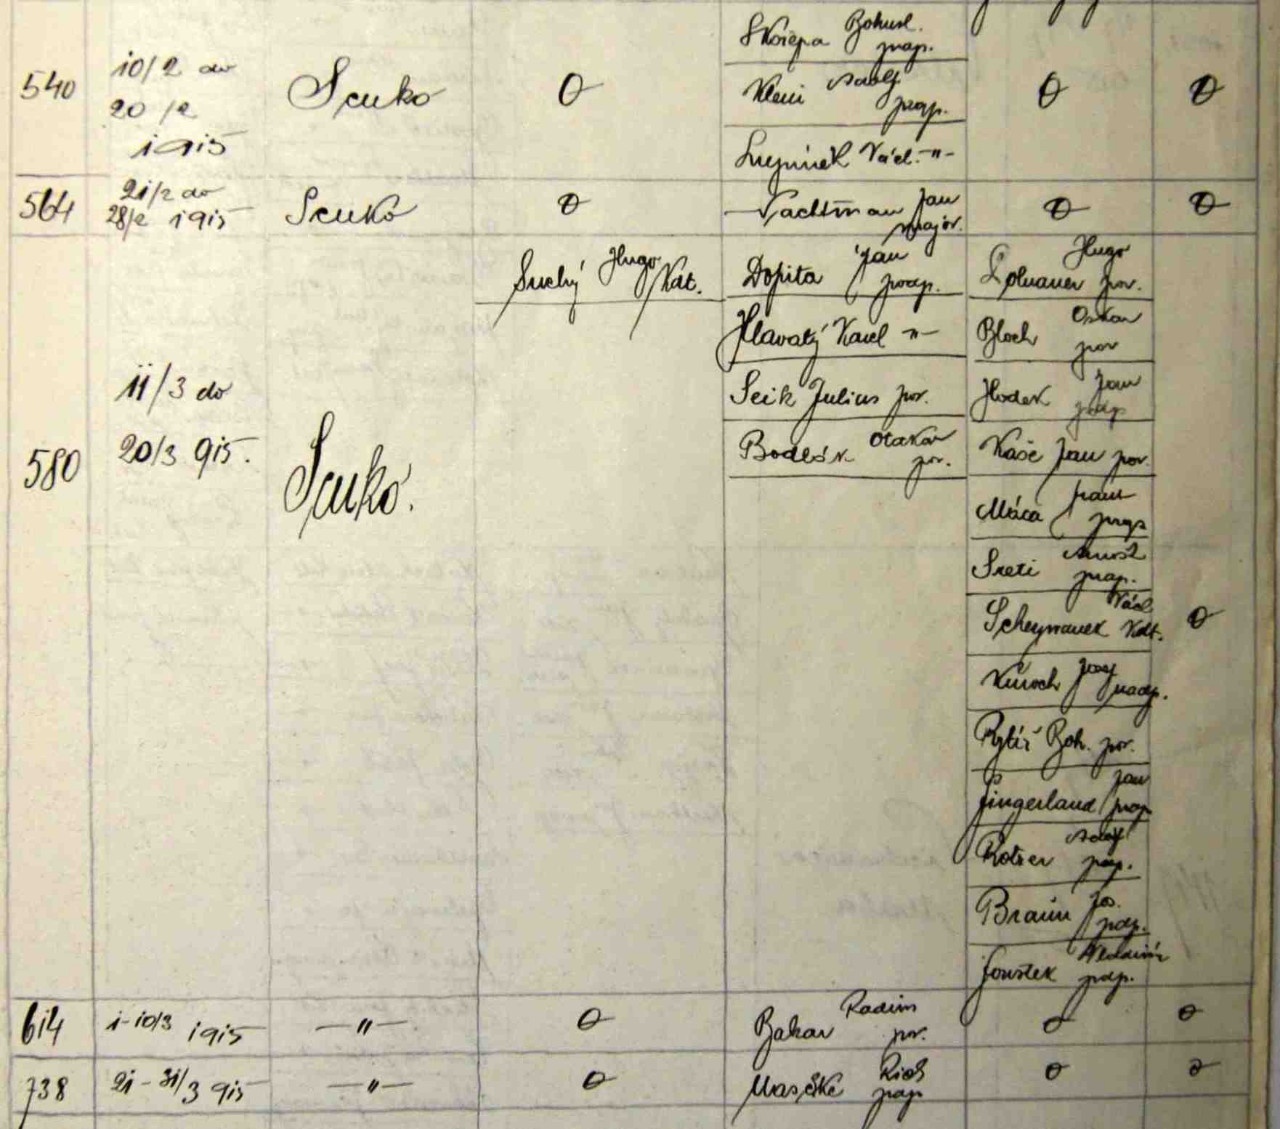 540 10/2 do 20/2 1915 Scuko 0 Skořepa Bohusl. prap. 0 0
Klein Adolf prap.
Václ. -"-
564 21/2 do 28/2 1915 Scuko 0 Vachtman Jan major. 0 0
580 11/3 do 20/3 915. Scuko. Suchý Hugo Kdt. Dopita Jan prap. Hugo por. 0
Hlavatý Karel -"- Bloch Oskar por
Seik Julius por. Hodek Jan podp
Bodlák Otakar por. Kaše Jan por.
Máca Frant prap
Sreti Arnošt prap.
Václ. Kdt.
Josef nadp.
Rytíř Boh. por.
Jingerland Jan prap
Rotter Adolf prap.
Braun Jos. podp.
Joustek Vladimír podp.
614 1-10/3 1915 -"- 0 Bakar Radim por. 0 0
738 21-31/3 915 -"- 0 prap 0 0